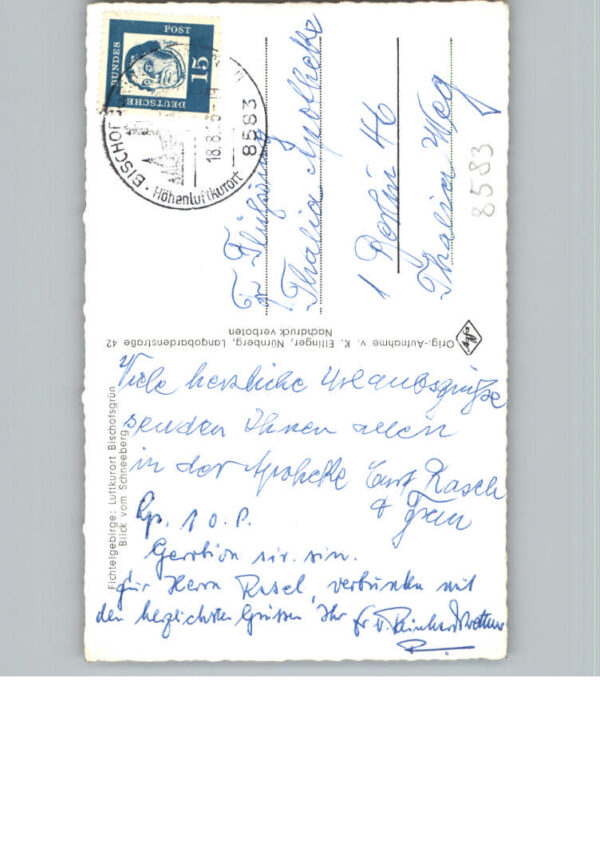 DEUTSCHE BUNDESPOST
15
BISCHOFSGRÜN
18.8.
8583
Höhenluftkurort
Thalia Apotheke
1 Berlin 46
Thalia Weg
8583
Orig.-Aufnahme v. K. Ellinger, Nürnberg, Langobardenstraße 42
Nachdruck verboten
Fichtelgebirge: Luftkurort Bischofsgrün
Blick vom Schneeberg
Viele herzliche Urlaubsgrüße
senden Ihnen allen
in der Apotheke Curt Rasch
& Frau
Rp. 1 O.P.
für Herrn Rasch, verbunden mit
den herzlichsten Grüssen, Ihr